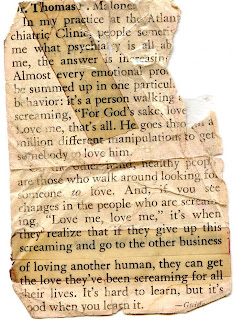 r. Thomas P. Malone
In my practice at the Atlan
chiatric Clinic, people somet
me what psychiatry is all ab
me, the answer is increasing
Almost every emotional pro
be summed up in one particul
behavior: it's a person walking a
screaming, "For God's sake, love
Love me, that's all. He goes through a
million different manipulations to get
somebody to love him.
the other hand, healthy peop
are those who walk around looking for
someone to love. And, if you see
changes in the people who are scream-
ing, "Love me, love me," it's when
they realize that if they give up this
screaming and go to the other business
of loving another human, they can get
the love they've been screaming for all
their lives. It's hard to learn, but it's
good when you learn it.